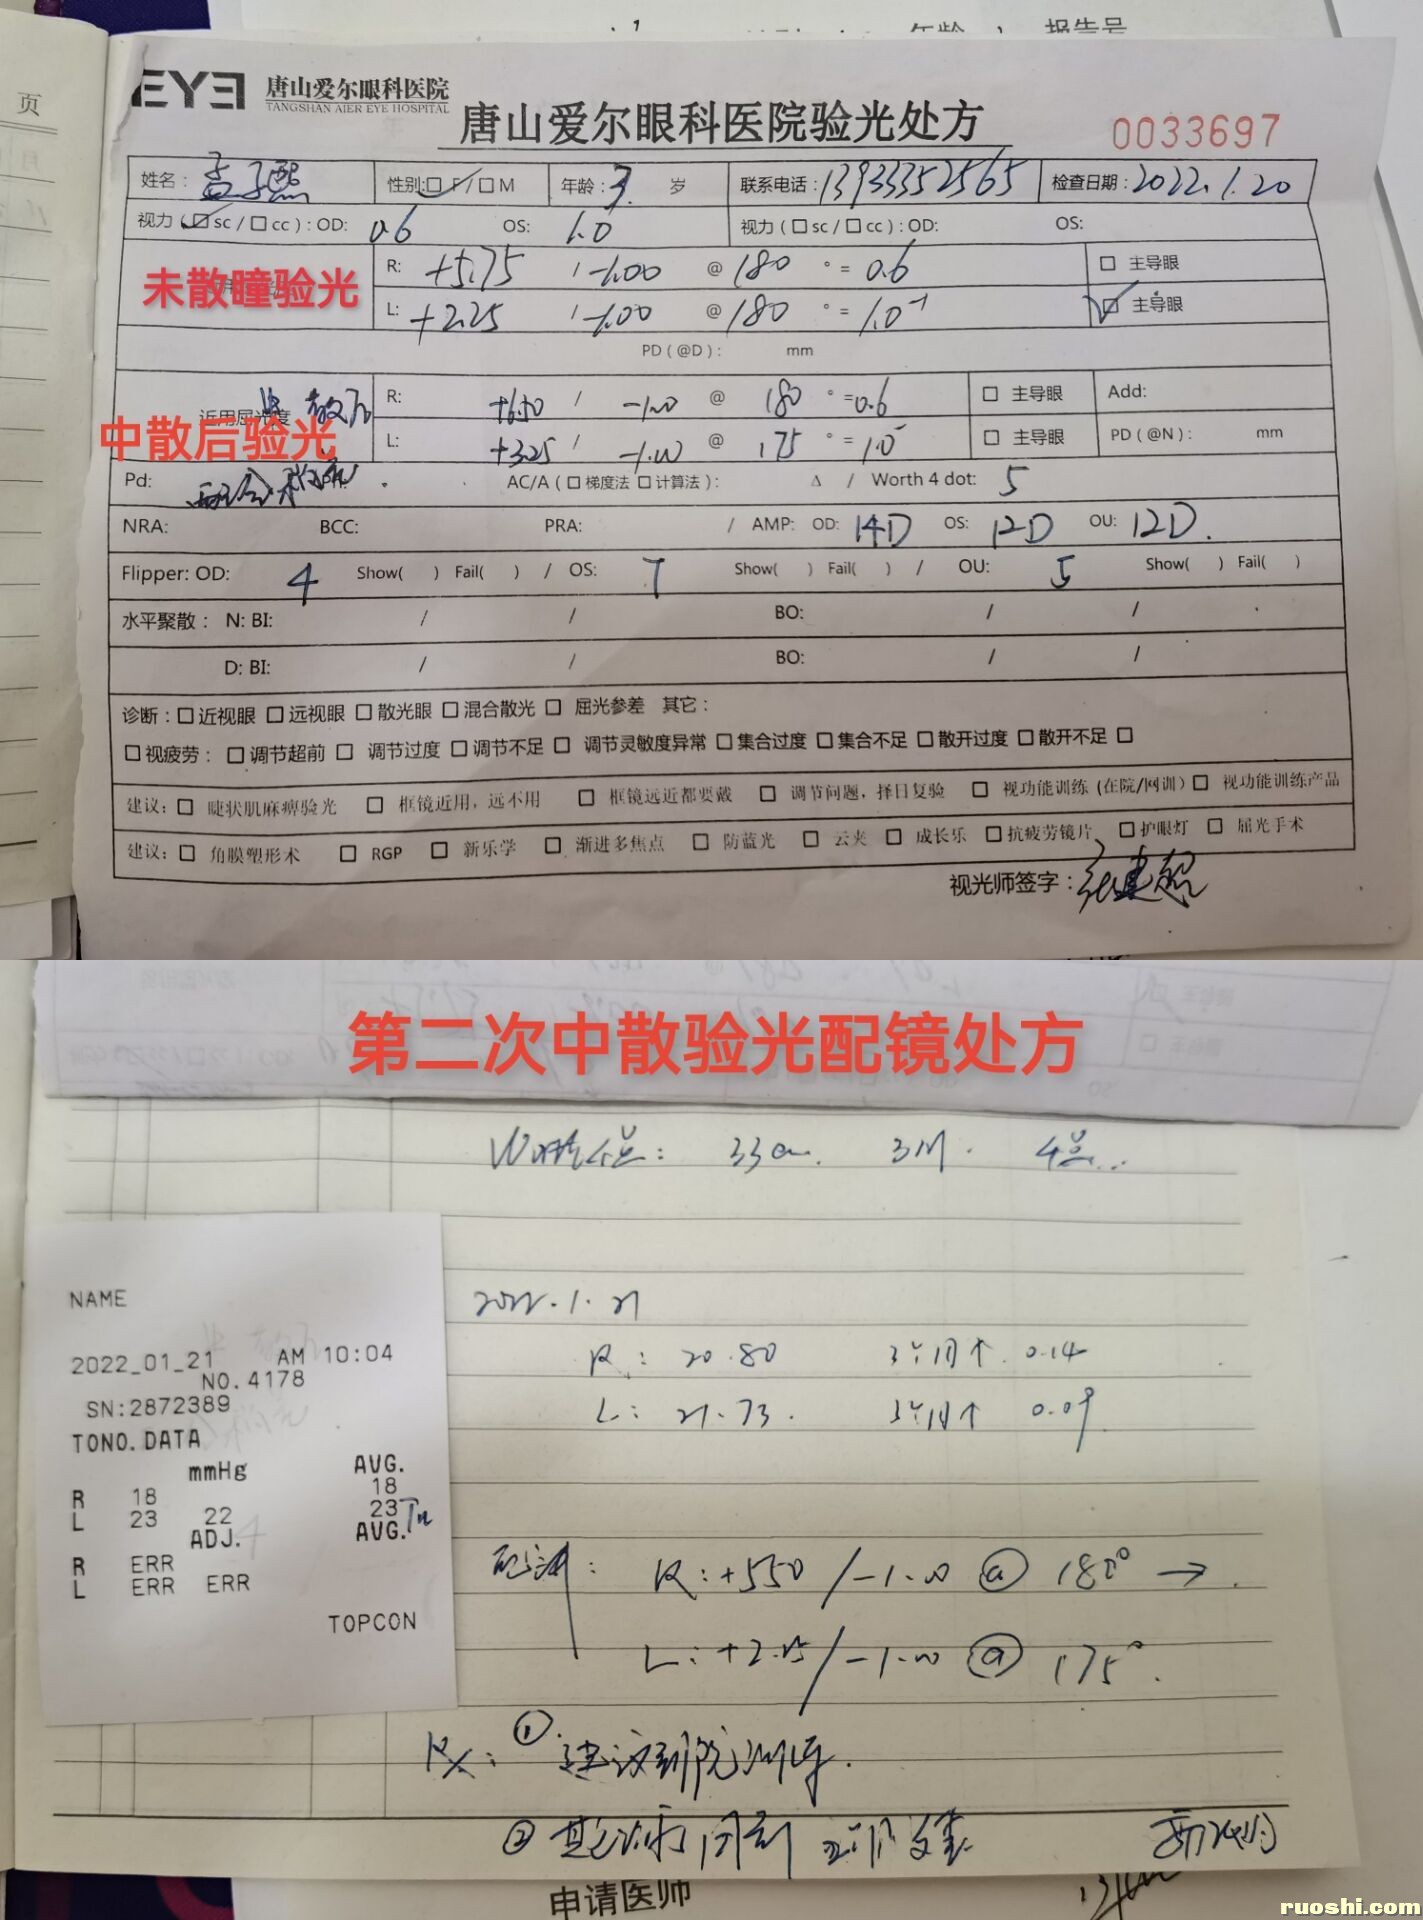 年龄 报告号
页
月
EYE 唐山爱尔眼科医院
TANGSHAN AIER EYE HOSPITAL
唐山爱尔眼科医院验光处方
0033697
姓名: 孟子熙 性别:□ F/□ M 年龄: 3 岁 联系电话: 13933352565 检查日期: 2022.1.20
视力(□ sc / □ cc): OD: 0.6 OS: 1.0 视力(□ sc / □ cc): OD: OS:
未散瞳验光
R: +5.75 / -1.00 @ 180 ° = 0.6 □ 主导眼
L: +2.25 / -1.00 @ 180 ° = 1.0⁻¹ □ 主导眼
PD(@D): mm
近用屈光度
中散后验光
R: +6.50 / -1.00 @ 180 ° = 0.6 □ 主导眼 Add:
L: +3.25 / -1.00 @ 175 ° = 1.0⁻ □ 主导眼 PD(@N): mm
Pd: AC/A(□ 梯度法 □ 计算法): Δ / Worth 4 dot: 5
NRA: BCC: PRA: / AMP: OD: 14D OS: 12D OU: 12D.
Flipper: OD: 4 Show( ) Fail( ) / OS: 7 Show( ) Fail( ) / OU: 5 Show( ) Fail( )
水平聚散: N: BI: / / BO: / /
D: BI: / / BO: / /
诊断:□ 近视眼 □ 远视眼 □ 散光眼 □ 混合散光 □ 屈光参差 其它:
□ 视疲劳: □ 调节超前 □ 调节过度 □ 调节不足 □ 调节灵敏度异常 □ 集合过度 □ 集合不足 □ 散开过度 □ 散开不足 □
建议: □ 睫状肌麻痹验光 □ 框镜近用,远不用 □ 框镜远近都要戴 □ 调节问题,择日复验 □ 视功能训练 (在院/网训) □ 视功能训练产品
建议: □ 角膜塑形术 □ RGP □ 新乐学 □ 渐进多焦点 □ 防蓝光 □ 云夹 □ 成长乐 □ 抗疲劳镜片 □ 护眼灯 □ 屈光手术
视光师签字: 张建超
第二次中散验光配镜处方
33cm. 3M. 4点...
NAME
2022_01_21 AM 10:04
NO.4178
SN:2872389
TONO.DATA
mmHg AVG.
R 18 18
L 23 22 23 Tn
ADJ. AVG.
R ERR
L ERR ERR
TOPCON
2022.1.21
R: 20.80 3个月↑ 0.14
L: 21.73. 3个月↑ 0.09
R: +550 / -1.00 @ 180° →.
L: +2.25 / -1.00 @ 175°.
Rx: ① 建议到院训练.
②
申请医师
ruoshi.com